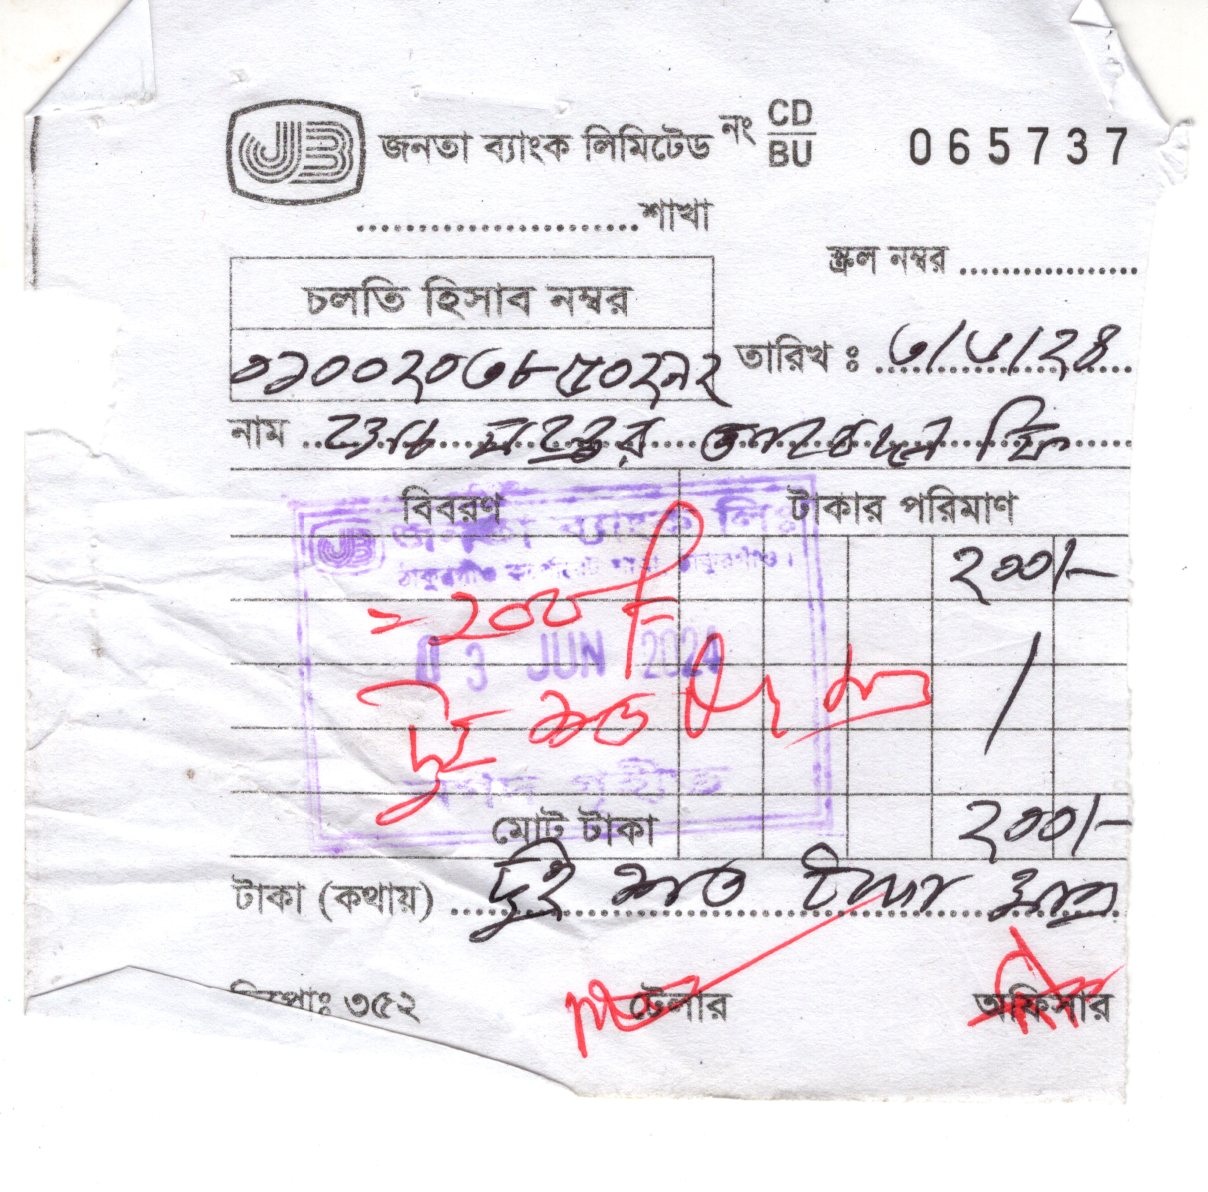 JB জনতা ব্যাংক লিমিটেড নং CD/BU 065737
....................শাখা
স্ক্রল নম্বর ..................
চলতি হিসাব নম্বর
তারিখ ঃ ৩/৬/২৪
নাম
বিবরণ টাকার পরিমাণ
জনতা ব্যাংক লিঃ
২০০/-
= ২০০/=
03 JUN 2024
দুই শত টাঃ মাত্র
মোট টাকা ২০০/-
টাকা (কথায়) দুই শত টাকা মাত্র
৩৫২ টেলার অফিসার